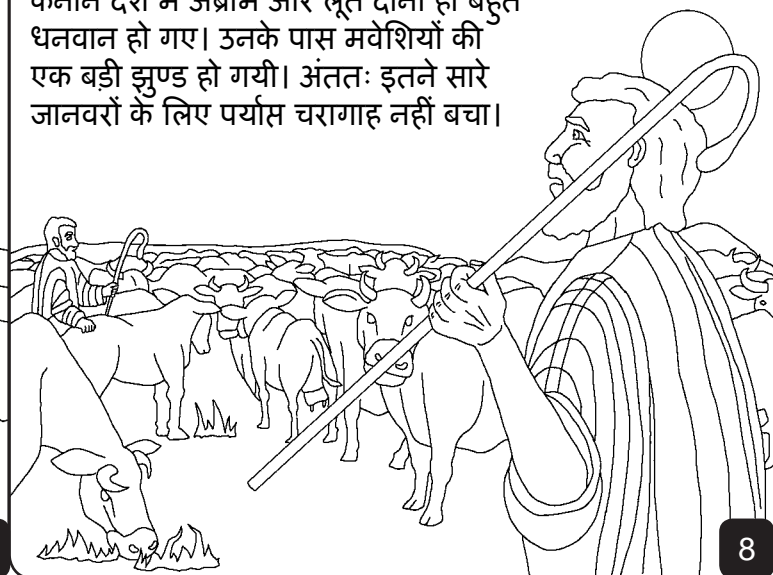 कनान देश में अब्राम और लूत दोनों ही बहुत
धनवान हो गए। उनके पास मवेशियों की
एक बड़ी झुण्ड हो गयी। अंततः इतने सारे
जानवरों के लिए पर्याप्त चरागाह नहीं बचा।
8